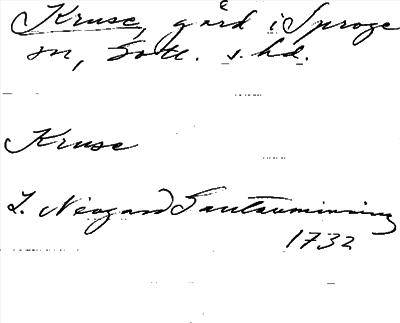 Kruse, gård i Sproge
sn, Gotl. s. hd.
Kruse
L. Neogard Gautauminning
1732